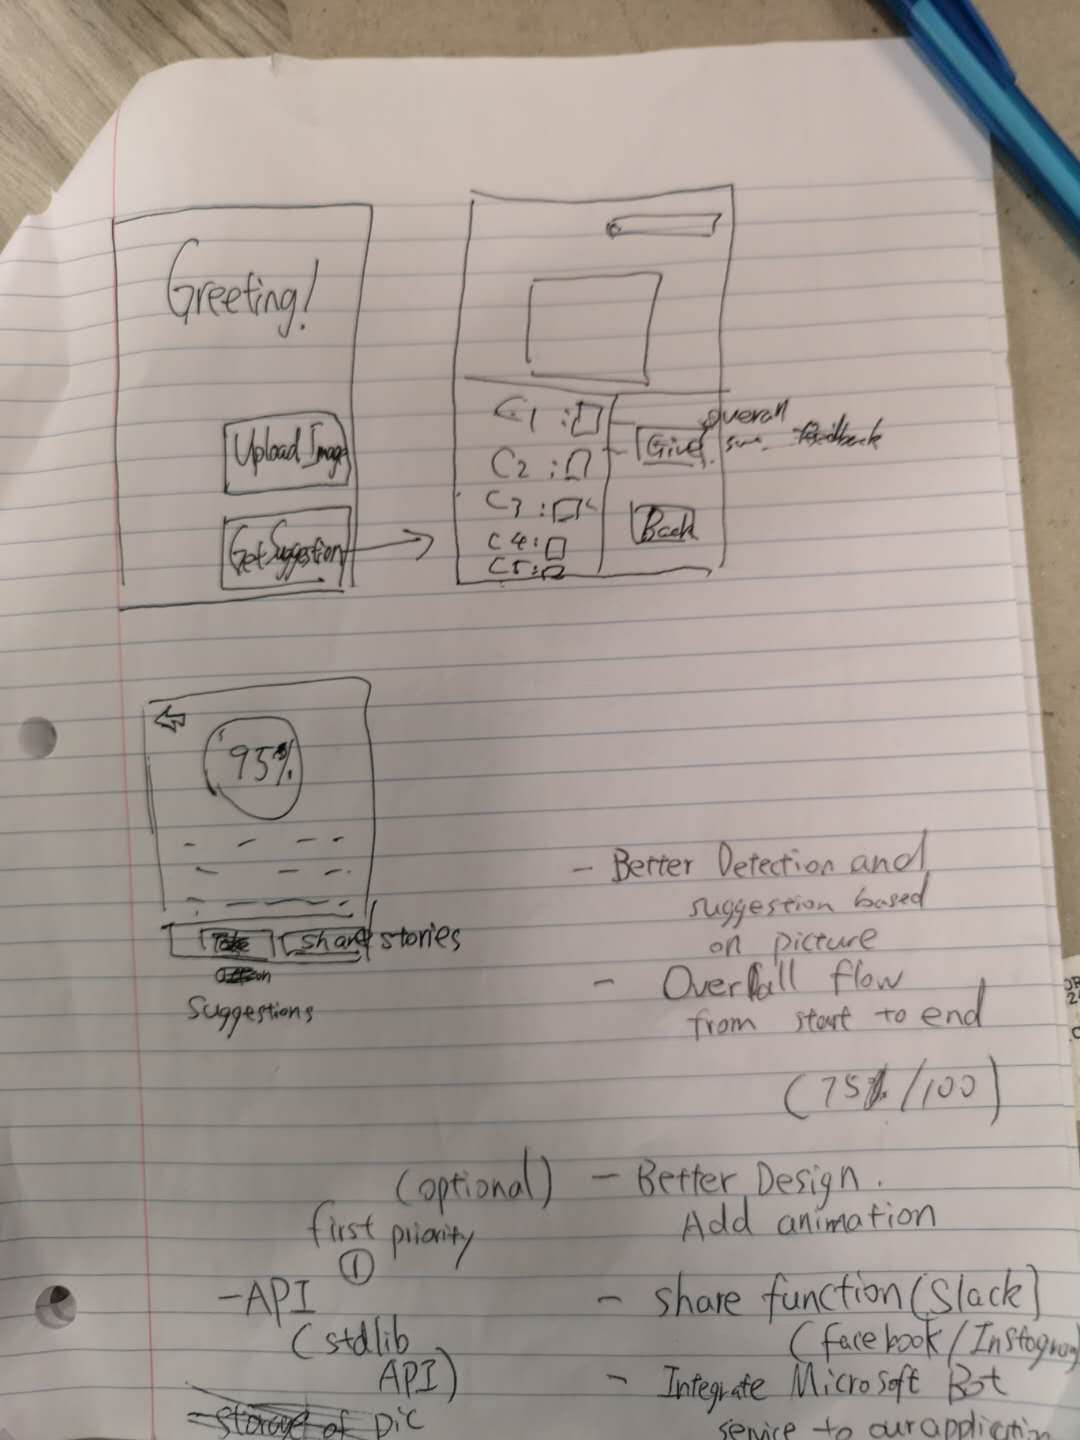 Greeting!
Upload Image
Get Suggestion
C1 :
C2 :
C3 :
C4 :
C5 :
overall
Give
feedback
Back
95%
share stories
Suggestions
- Better Detection and
suggestion based
on picture
- Overall flow
from start to end
(75%/100)
(optional) - Better Design.
Add animation
first priority
①
- API
(stdlib
API)
- share function (Slack)
(facebook/Instogram
- Integrate Microsoft Bot
service to our application
storage of pic